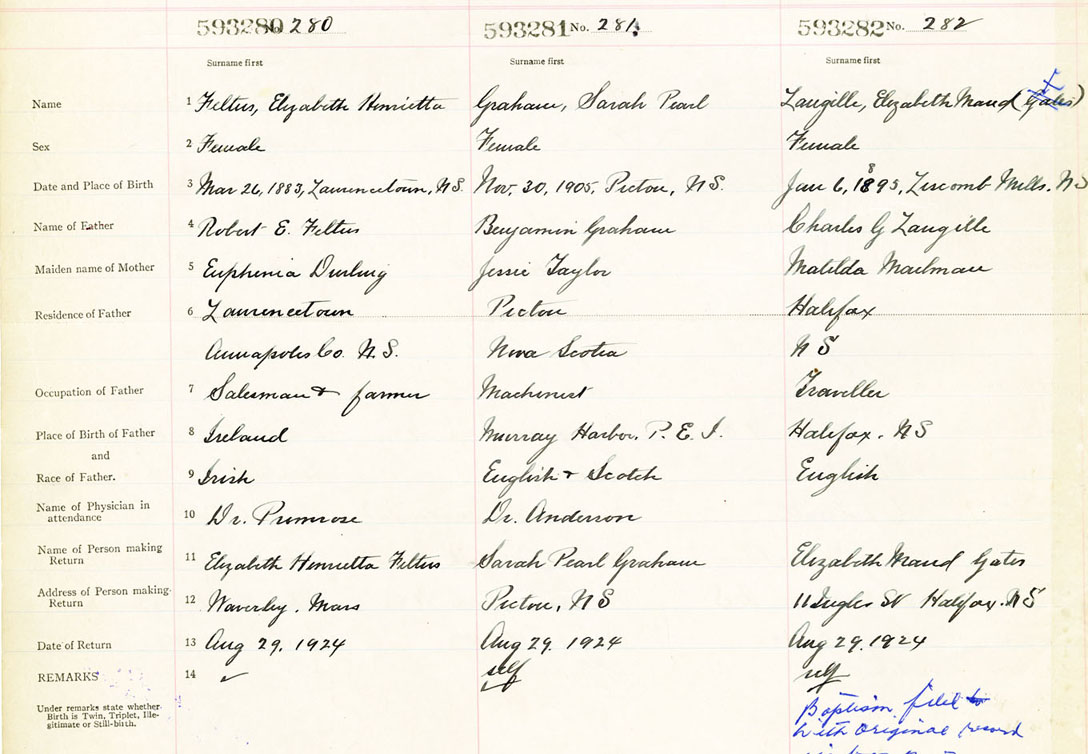 593280 No. 280 593281 No. 281 593282 No. 282
Surname first Surname first Surname first
Name 1 Feltus, Elizabeth Henrietta Graham, Sarah Pearl Langille, Elizabeth Maud (Gates)
Sex 2 Female Female Female
Date and Place of Birth 3 Mar 26, 1883, Lawrencetown, N.S. Nov. 30, 1905, Pictou, N.S. Jan 6, 1895, Liscomb Mills. NS
Name of Father 4 Robert E. Feltus Benjamin Graham Charles G Langille
Maiden name of Mother 5 Euphenia Durling Jessie Taylor Matilda Mailman
Residence of Father 6 Lawrencetown Pictou Halifax
Annapolis Co. N.S. Nova Scotia N S
Occupation of Father 7 Salesman & farmer Machinist Traveller
Place of Birth of Father 8 Ireland Murray Harbor, P.E.I. Halifax. NS
and
Race of Father. 9 Irish English & Scotch English
Name of Physician in
attendance 10 Dr. Primrose Dr. Anderson
Name of Person making
Return 11 Elizabeth Henrietta Feltus Sarah Pearl Graham Elizabeth Maud Gates
Address of Person making
Return 12 Waverley. Mass Pictou, NS 11 Inglis St Halifax. NS
Date of Return 13 Aug 29, 1924 Aug 29. 1924 Aug 29. 1924
REMARKS 14 self self
Under remarks state whether
Birth is Twin, Triplet, Ille-
gitimate or Still-birth.
Baptism filed
with original record